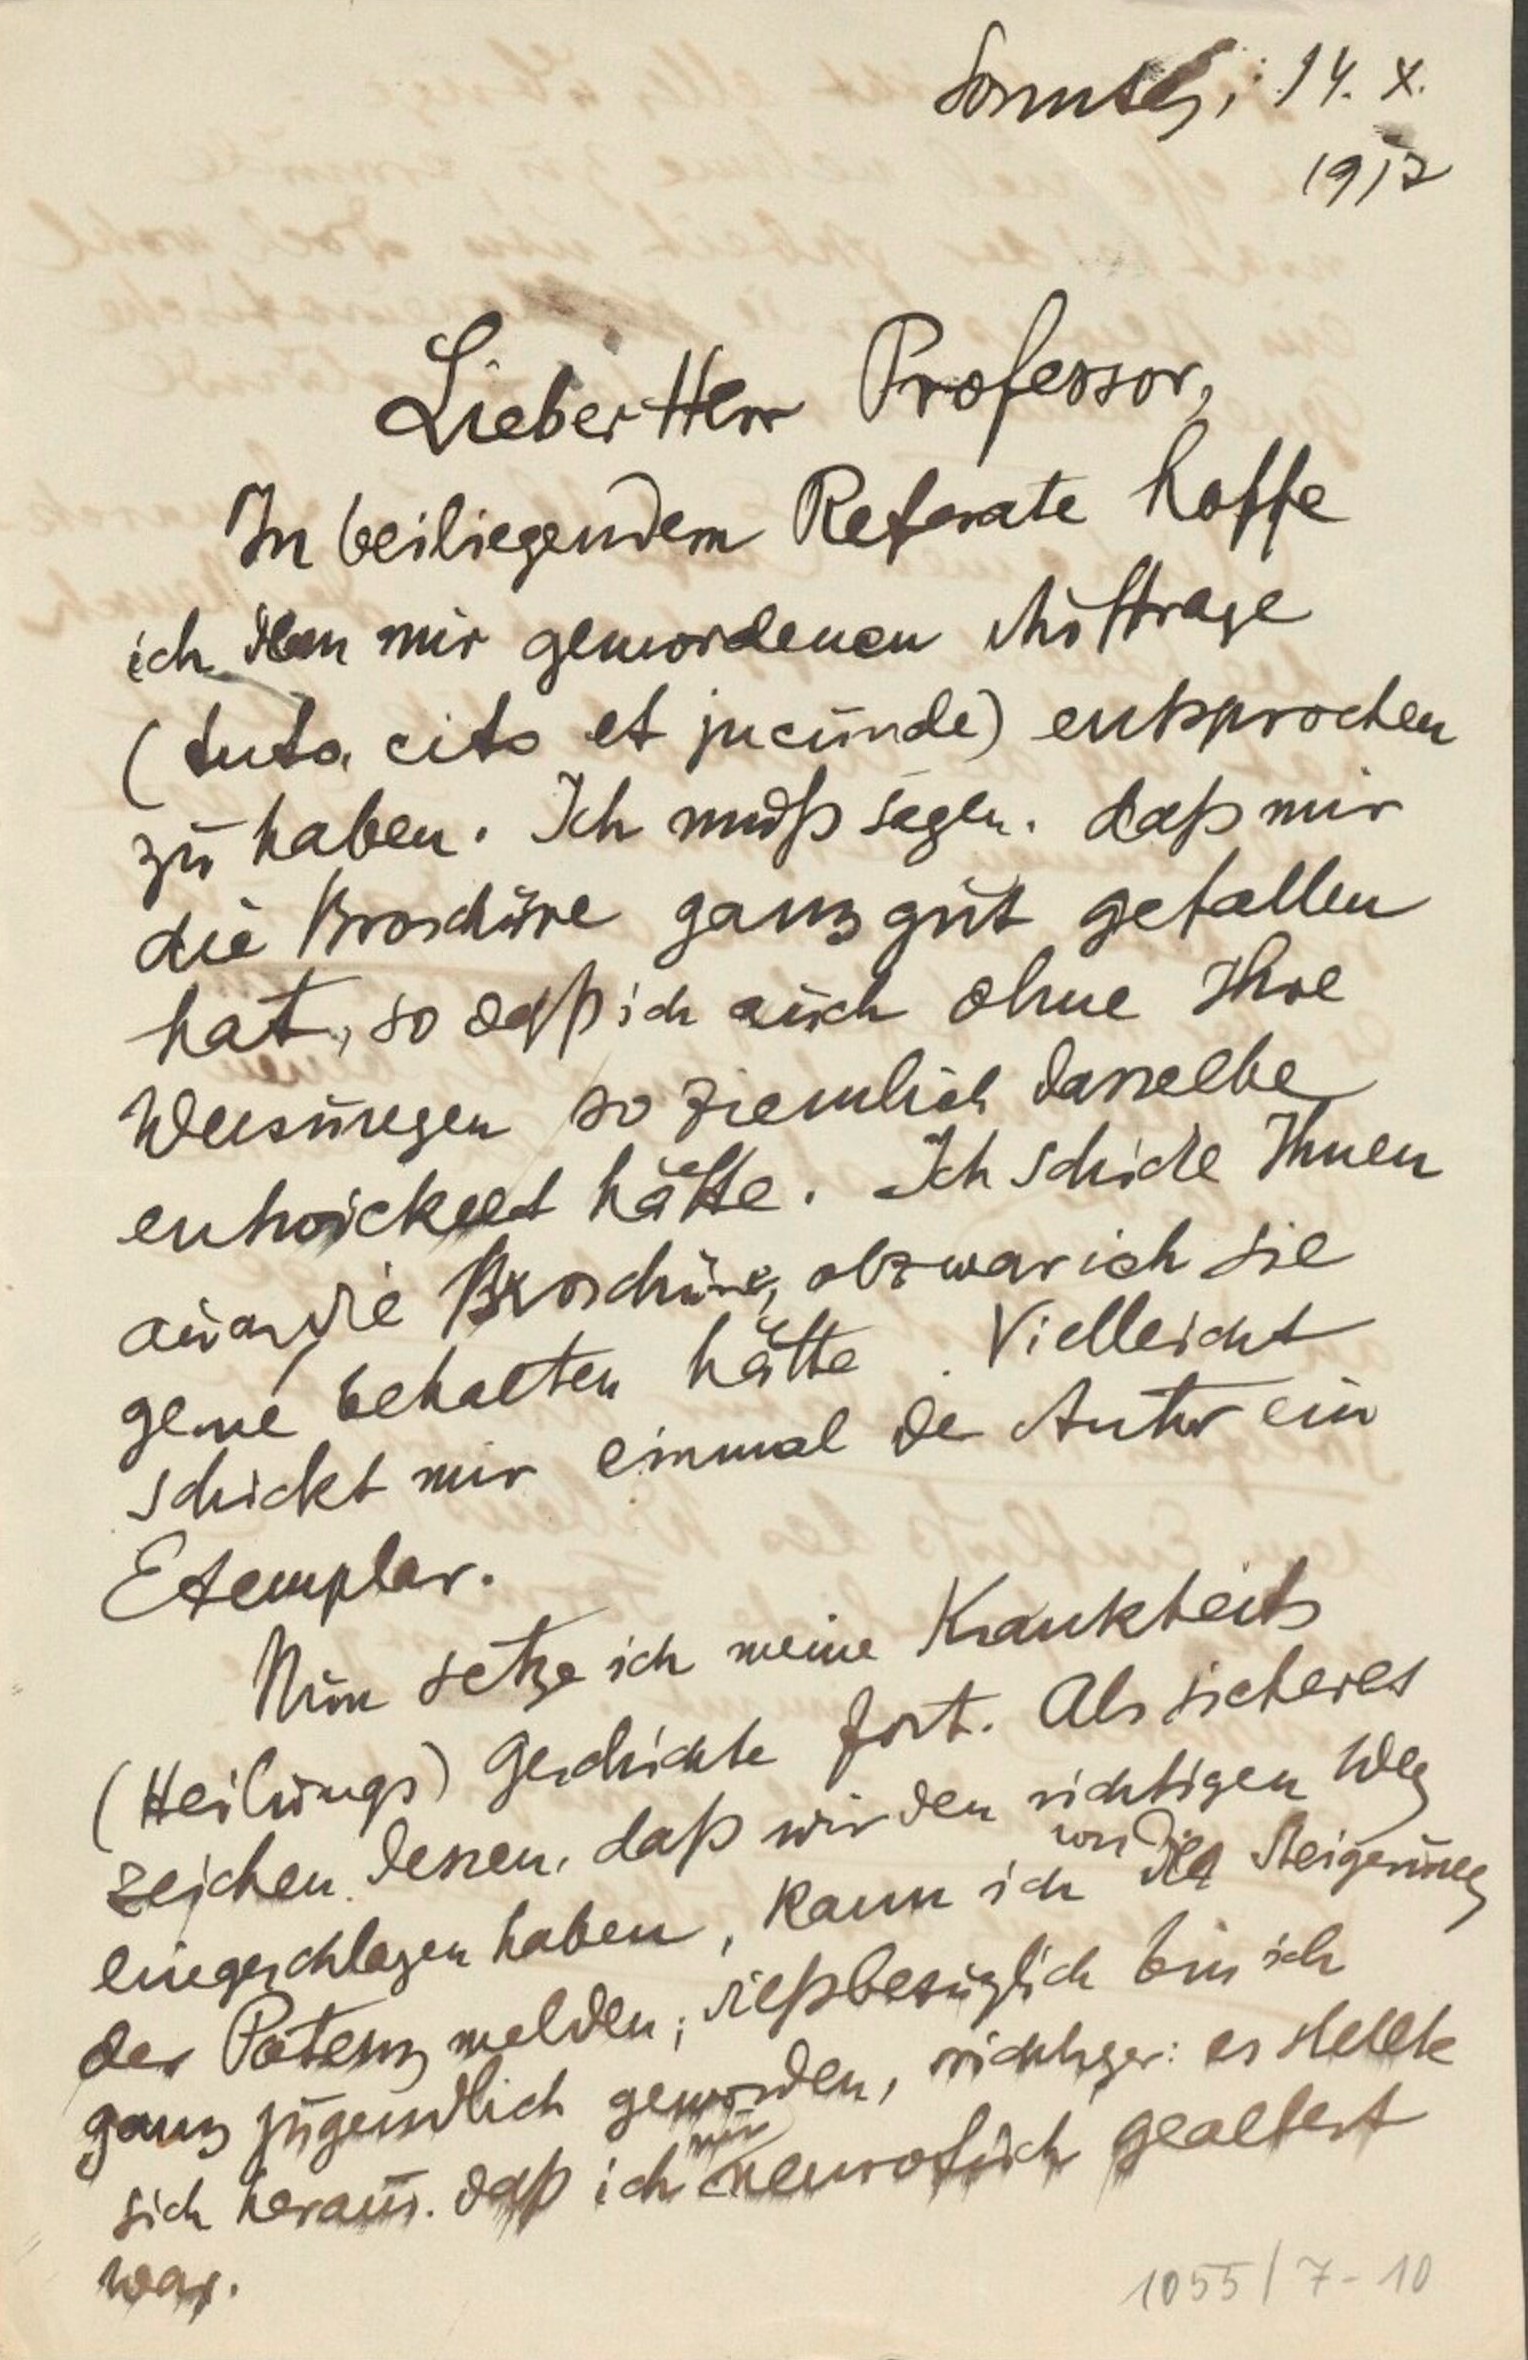 Sonntag, 14. X.
1917
Lieber Herr Professor,
In beiliegendem Referate hoffe
ich dem mir gewordenen Auftrage
(tuto, cito et jucunde) entsprochen
zu haben. Ich muß sagen, daß mir
die Broschüre ganz gut gefallen
hat, so daß ich auch ohne Ihre
Weisungen so ziemlich dasselbe
entwickelt hätte. Ich schicke Ihnen
auch die Broschüre, obzwar ich sie
gerne behalten hätte. Vielleicht
schickt mir einmal der Autor ein
Exemplar.
Nun setze ich meine Krankheits
(Heilungs) Geschichte fort. Als sicheres
Zeichen dessen, daß wir den richtigen Weg
eingeschlagen haben, kann ich von der Steigerung
der Potenz melden; dießbezüglich bin ich
ganz jugendlich geworden, richtiger: es stellte
sich heraus, daß ich nur neurotisch gealtert
war.
1055/7-10